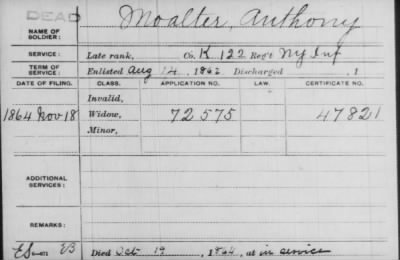 DEAD
NAME OF SOLDIER: Moalter, Anthony
SERVICE: Late rank, Co. K 122 Reg't NY Inf
TERM OF SERVICE: Enlisted Aug 14, 1862 Discharged , 1
DATE OF FILING. CLASS. APPLICATION NO. LAW. CERTIFICATE NO.
Invalid,
1864 Nov 18 Widow, 72575 47821
Minor,
ADDITIONAL SERVICES:
REMARKS:
Died Oct 19, 1864, at in service